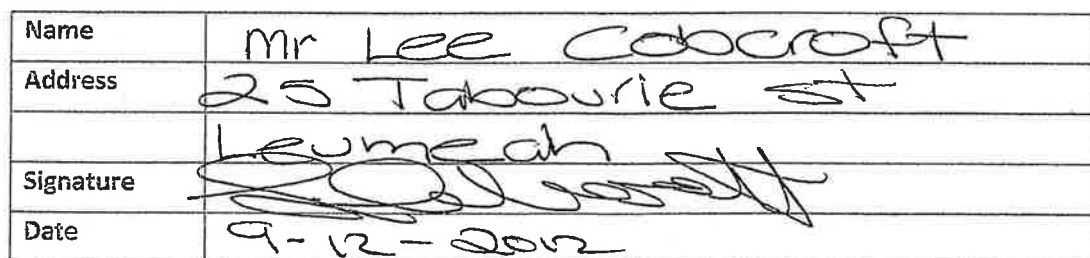 Name Mr Lee Cobcroft
Address 25 Tabourie st
Leumeah
Signature
Date 9-12-2012